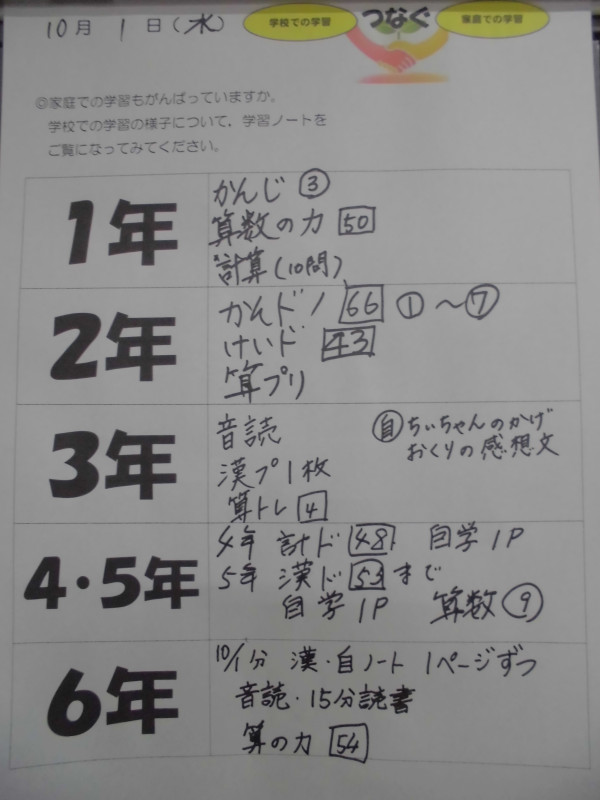 10月 1日(水)
学校での学習 つなぐ 家庭での学習
◎家庭での学習もがんばっていますか。
学校での学習の様子について、学習ノートを
ご覧になってみてください。
1年
かんじ ③
算数の力 50
計算(10問)
2年
かんドノ 66 ①〜⑦
けいド 43
算プリ
3年
音読
漢プ1枚
算トレ 4
自 ちいちゃんのかげ
おくりの感想文
4・5年
4年 計ド 48 自学1P
5年 漢ド 53 まで
自学1P 算数⑨
6年
10/1分 漢・自ノート 1ページずつ
音読・15分読書
算の力 54